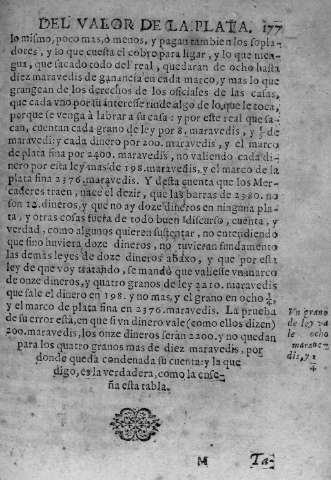 DEL VALOR DE LA PLATA. 177
lo mismo, poco mas, ò menos, y pagan tambien los sopla-
dores, y lo que cuesta el cobre para ligar, y lo que men-
gua, que sacado todo del real, quedaran de ocho hasta
diez maravedis de ganancia en cada marco, y mas lo que
grangean de los derechos de los oficiales de las casas,
que cada vno por su interesse rinde algo de lo que le toca,
porque se venga à labrar a su casa: y por este real que sa-
can, cuentan cada grano de ley por 8. maravedis, y ⅓ de
maravedi: y cada dinero por 200. maravedis, y el marco
de plata fina por 2400. maravedis, no valiendo cada di-
nero por esta ley mas de 198. maravedis, y el marco de la
plata fina 2376. maravedis. Y desta cuenta que los Mer-
caderes traen, nace el dezir, que las barras de 2380. no
son 12. dineros, y que no ay doze dineros en ninguna pla-
ta, y otras cosas fuera de todo buen discurso, cuenta, y
verdad, como algunos quieren sustentar, no entendiendo
que sino huviera doze dineros, no tuvieran fundamento
las demàs leyes de doze dineros abaxo, y que por esta
ley de que voy tratando, se mandò que valiesse vn marco
de onze dineros, y quatro granos de ley 2210. maravedis
que sale el dinero en 198. y no mas, y el grano en ocho ¼,
y el marco de plata fina en 2376. maravedis. La prueba
de su error està, en que si vn dinero vale (como ellos dizen)
200. maravedis, los onze dineros seràn 2200. y no quedan
para los quatro granos mas de diez maravedis, por
donde queda condenada su cuenta: y la que
digo, es la verdadera, como la ense-
ña esta tabla.
Vn grano
de ley va
le ocho
marave-
dis, y ¼
M Ta-